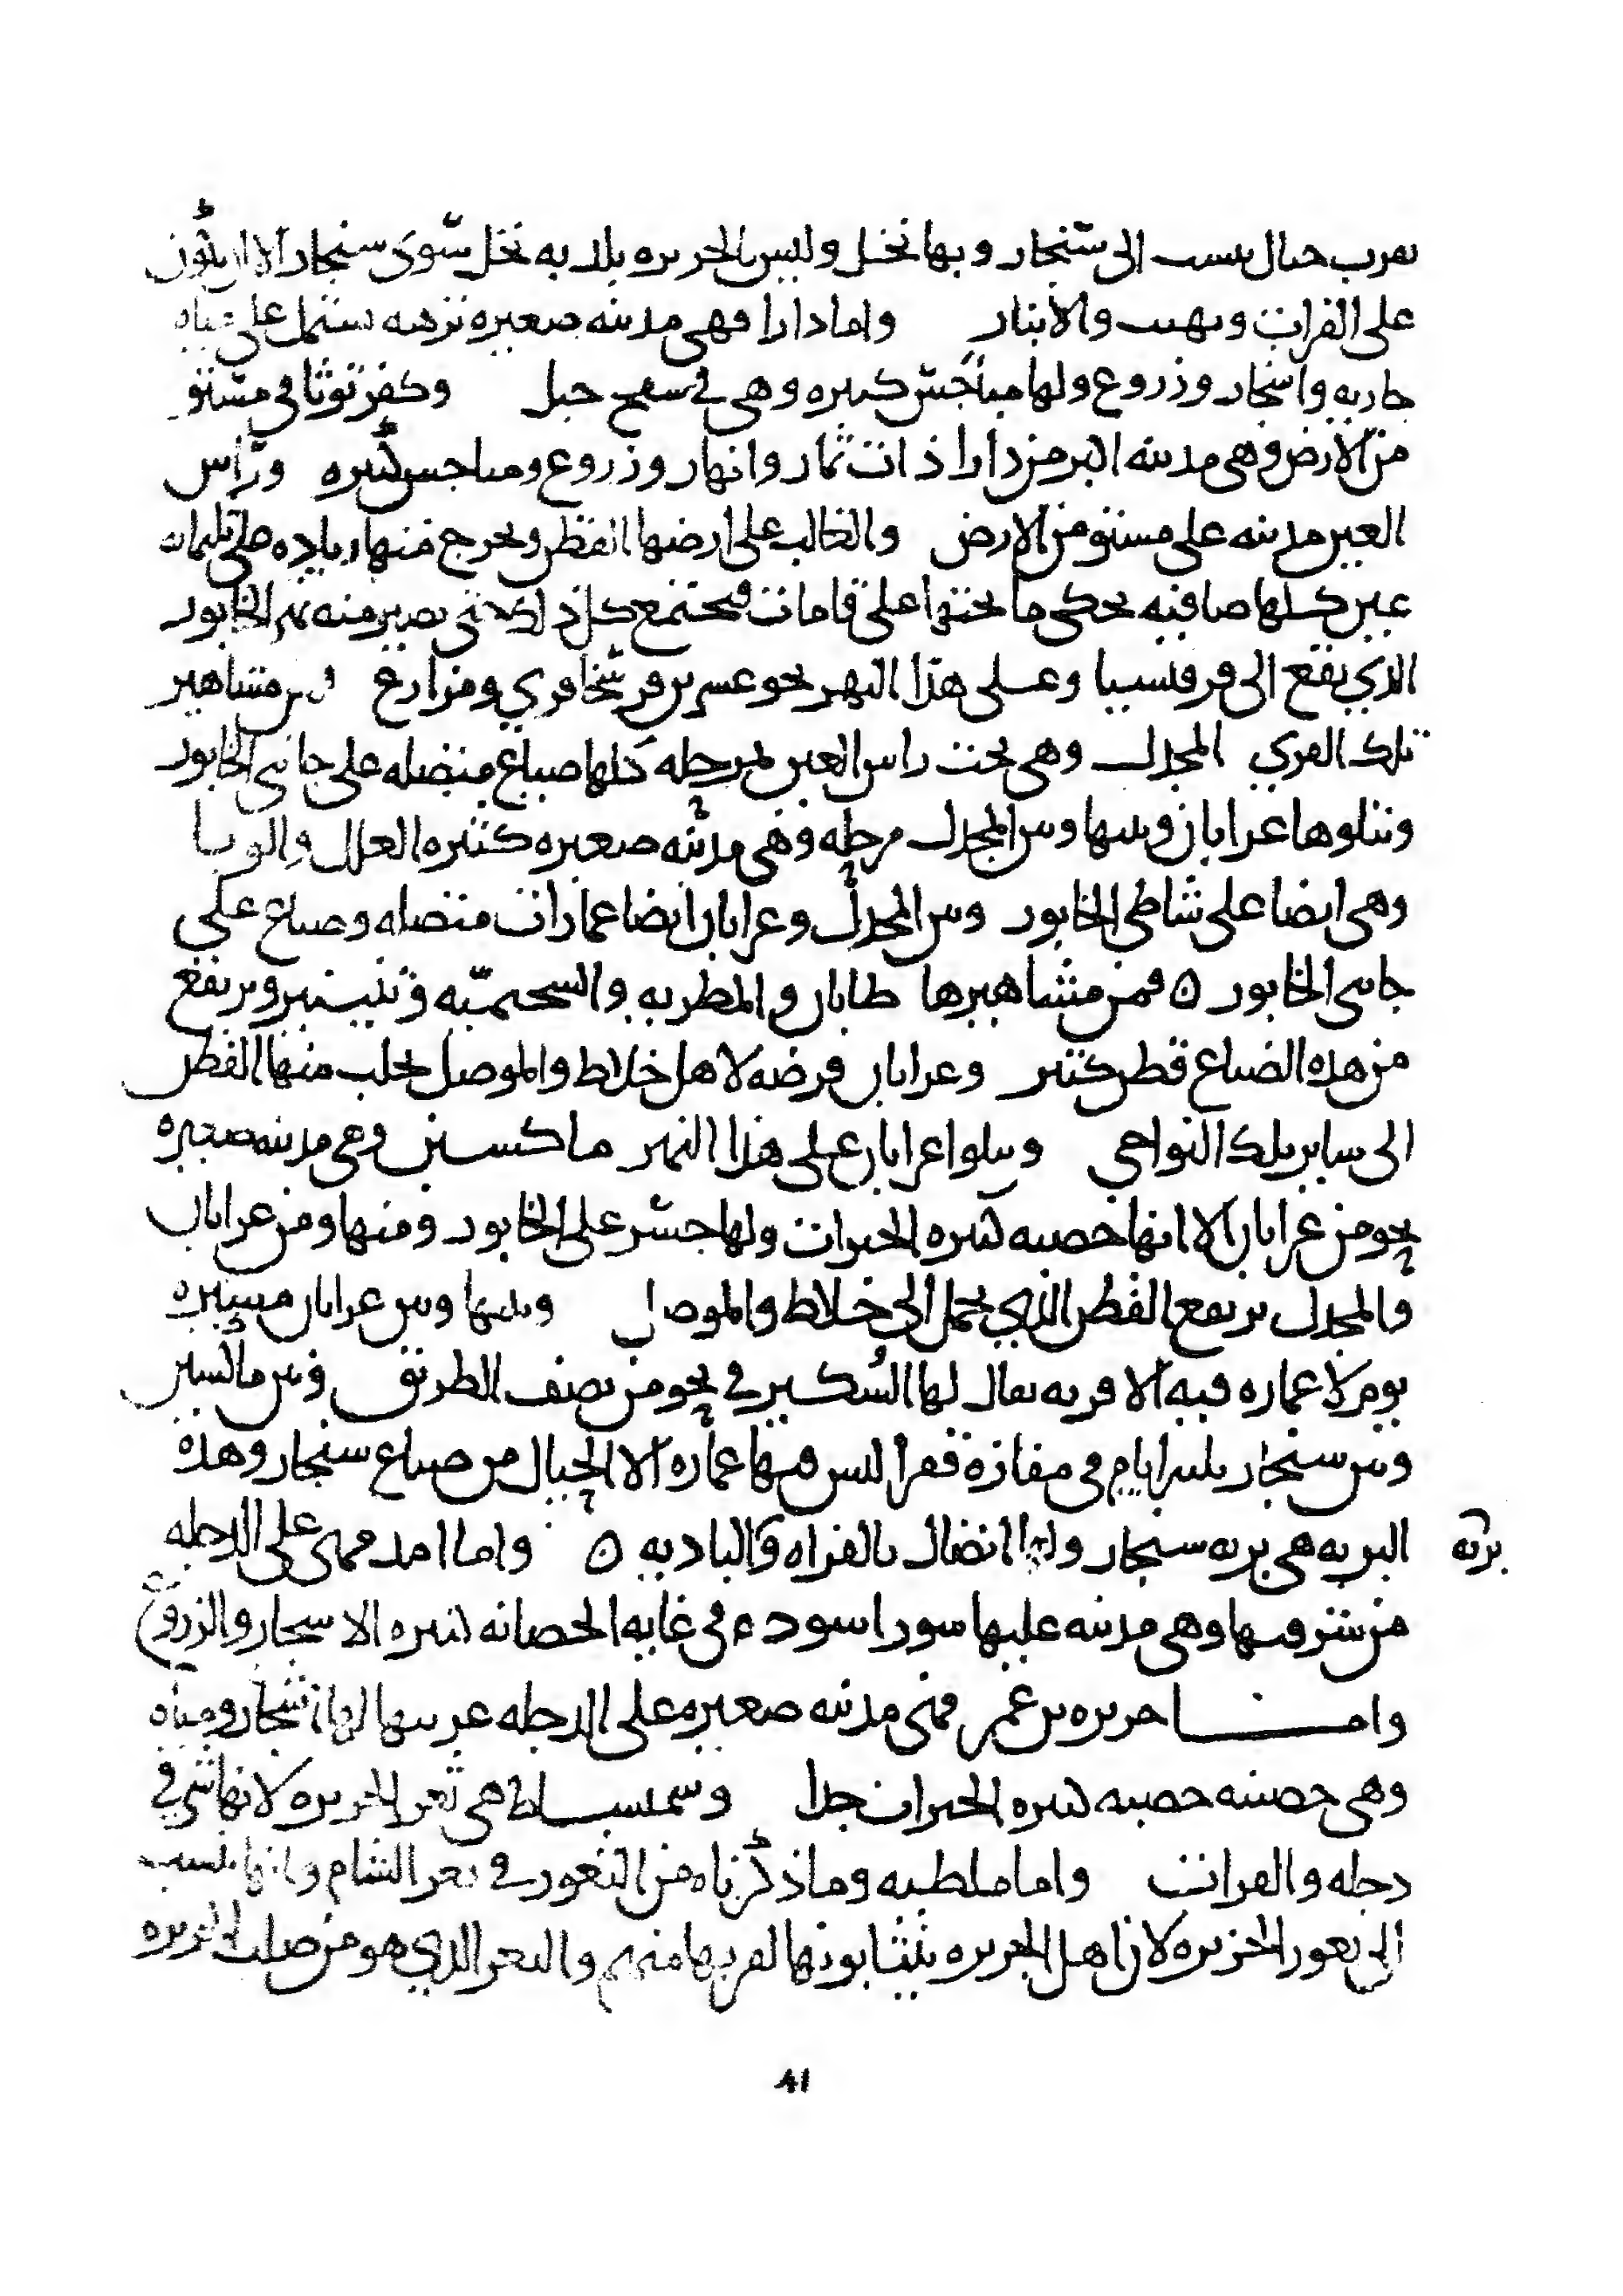 بقرب جبال تنسب الى سنجار وبها نخل وليس بالجزيره بلد به نخل سوى سنجار الا ان يكون
على الفرات وبهيت والانبار واما دارا فهى مدينه صغيره نزهه تشتمل على مياه
جاريه واشجار وزروع ولها مباخس كثيره وهى فى سفح جبل وكفرتوثا فى مستو
من الارض وهى مدينه اكبر من دارا ذات ثمار وانهار وزروع ومباخس كثيره وراس
العين مدينه على مستو من الارض والغالب على ارضها القطن ويخرج منها زياده على ثلثمايه
عين كلها صافيه يحكى ما تحتها على قامات فيجتمع كل ذلك حتى يصير منه نهر الخابور
الذي يقع الى قرقيسيا وعلى هذا النهر نحو عشرين فرسخا قري ومزارع ومن مشاهير
تلك القري المجدل وهى تحت راس العين بمرحله كلها ضياع متصله على جانبى الخابور
وتتلوها عرابان وبينها وبين المجدل مرحله وهى مدينه صغيره كثيره العلل والوبا
وهى ايضا على شاطى الخابور وبين المجدل وعرابان ايضا عمارات متصله وضياع على
جانبى الخابور ه فمن مشاهيرها طابان والمطريه والسحميه وتنينير ويرتفع
من هذه الضياع قطن كثير وعرابان فرضه لاهل خلاط والموصل يجلب منها القطن
الى ساير تلك النواحي ويتلوا عرابان على هذا النهر ماكسين وهى مدينه صغيره
نحو من عرابان الا انها خصبه كثيره الخيرات ولها جسر على الخابور ومنها ومن عرابان
والمجدل يرتفع القطن الذي يحمل الى خلاط والموصل وبينها وبين عرابان مسيره
يوم لا عماره فيه الا قريه يقال لها السُكير في نحو من نصف الطريق وبين ماكسين
وبين سنجار ثلثة ايام فى مفازة قفر ليس فيها عماره الا الجبال من ضياع سنجار وهذه
البريه هى بريه سنجار ولها اتصال بالفراه والباديه ه واما امد فهى على الدجله
بريه
من شرقيها وهى مدينه عليها سور اسود فى غايه الحصانه كثيره الاشجار والزروع
واما جزيره بن عمر فهى مدينه صغيره على الدجله غربيها لها اشجار ومياه
وهى حصينه خصبه كثيره الخيرات جدا وسميساط هى ثغر الجزيره لانها شي في
دجله والفرات واما ملطيه وما ذكرناه من الثغور فى ثغر الشام وانها تنسب
الى ثغور الجزيره لان اهل الجزيره ينتابونها لقربها منهم والثغر الذي هو من صلب الجزيره
41